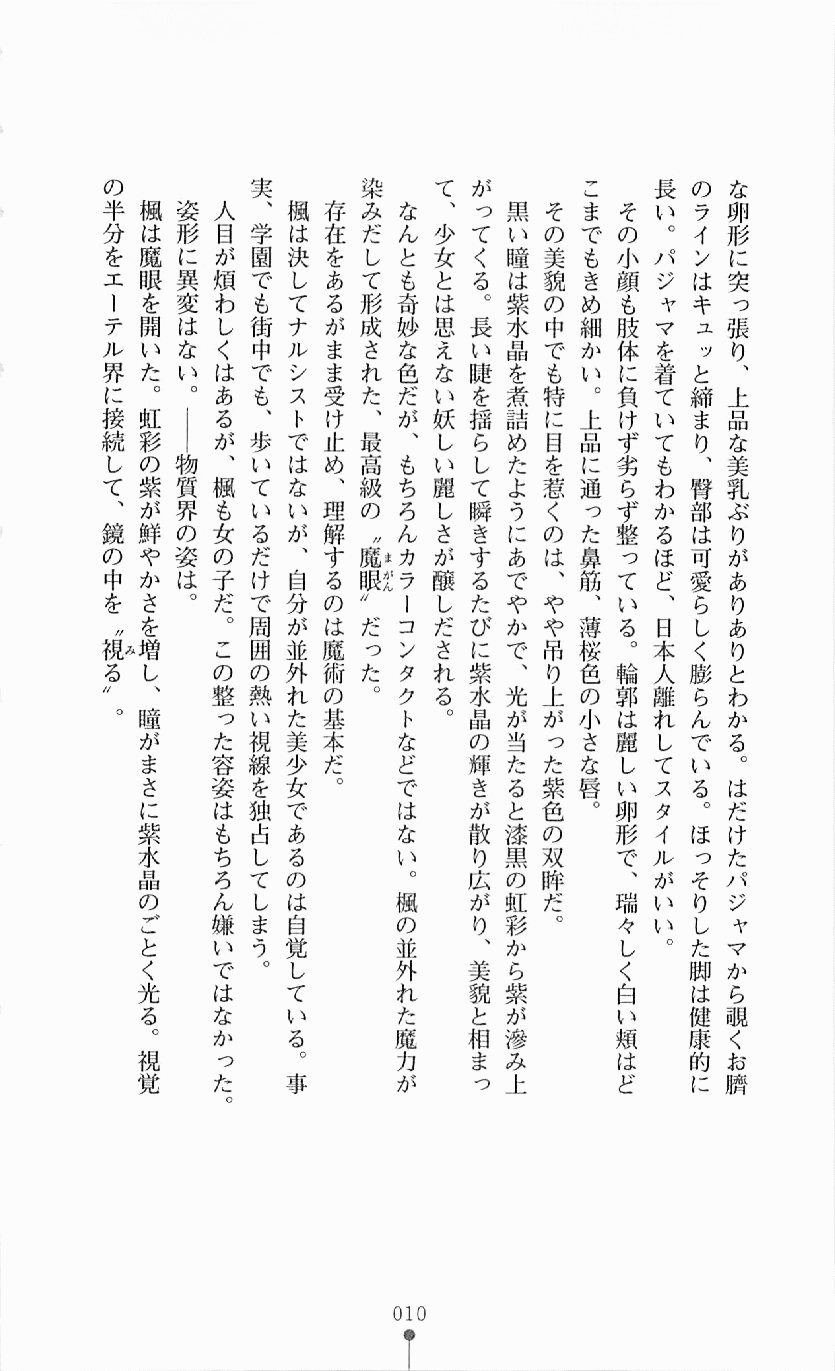 な卵形に突っ張り、上品な美乳ぶりがありありとわかる。はだけたパジャマから覗くお臍
のラインはキュッと締まり、臀部は可愛らしく膨らんでいる。ほっそりした脚は健康的に
長い。パジャマを着ていてもわかるほど、日本人離れしてスタイルがいい。
その小顔も肢体に負けず劣らず整っている。輪郭は麗しい卵形で、瑞々しく白い頬はど
こまでもきめ細かい。上品に通った鼻筋、薄桜色の小さな唇。
その美貌の中でも特に目を惹くのは、やや吊り上がった紫色の双眸だ。
黒い瞳は紫水晶を煮詰めたようにあでやかで、光が当たると漆黒の虹彩から紫が滲み上
がってくる。長い睫を揺らして瞬きするたびに紫水晶の輝きが散り広がり、美貌と相まっ
て、少女とは思えない妖しい麗しさが醸しだされる。
なんとも奇妙な色だが、もちろんカラーコンタクトなどではない。楓の並外れた魔力が
染みだして形成された、最高級の〝魔眼〟だった。
まがん
存在をあるがまま受け止め、理解するのは魔術の基本だ。
楓は決してナルシストではないが、自分が並外れた美少女であるのは自覚している。事
実、学園でも街中でも、歩いているだけで周囲の熱い視線を独占してしまう。
人目が煩わしくはあるが、楓も女の子だ。この整った容姿はもちろん嫌いではなかった。
姿形に異変はない。――物質界の姿は。
楓は魔眼を開いた。虹彩の紫が鮮やかさを増し、瞳がまさに紫水晶のごとく光る。視覚
の半分をエーテル界に接続して、鏡の中を〝視る〟。
み
010